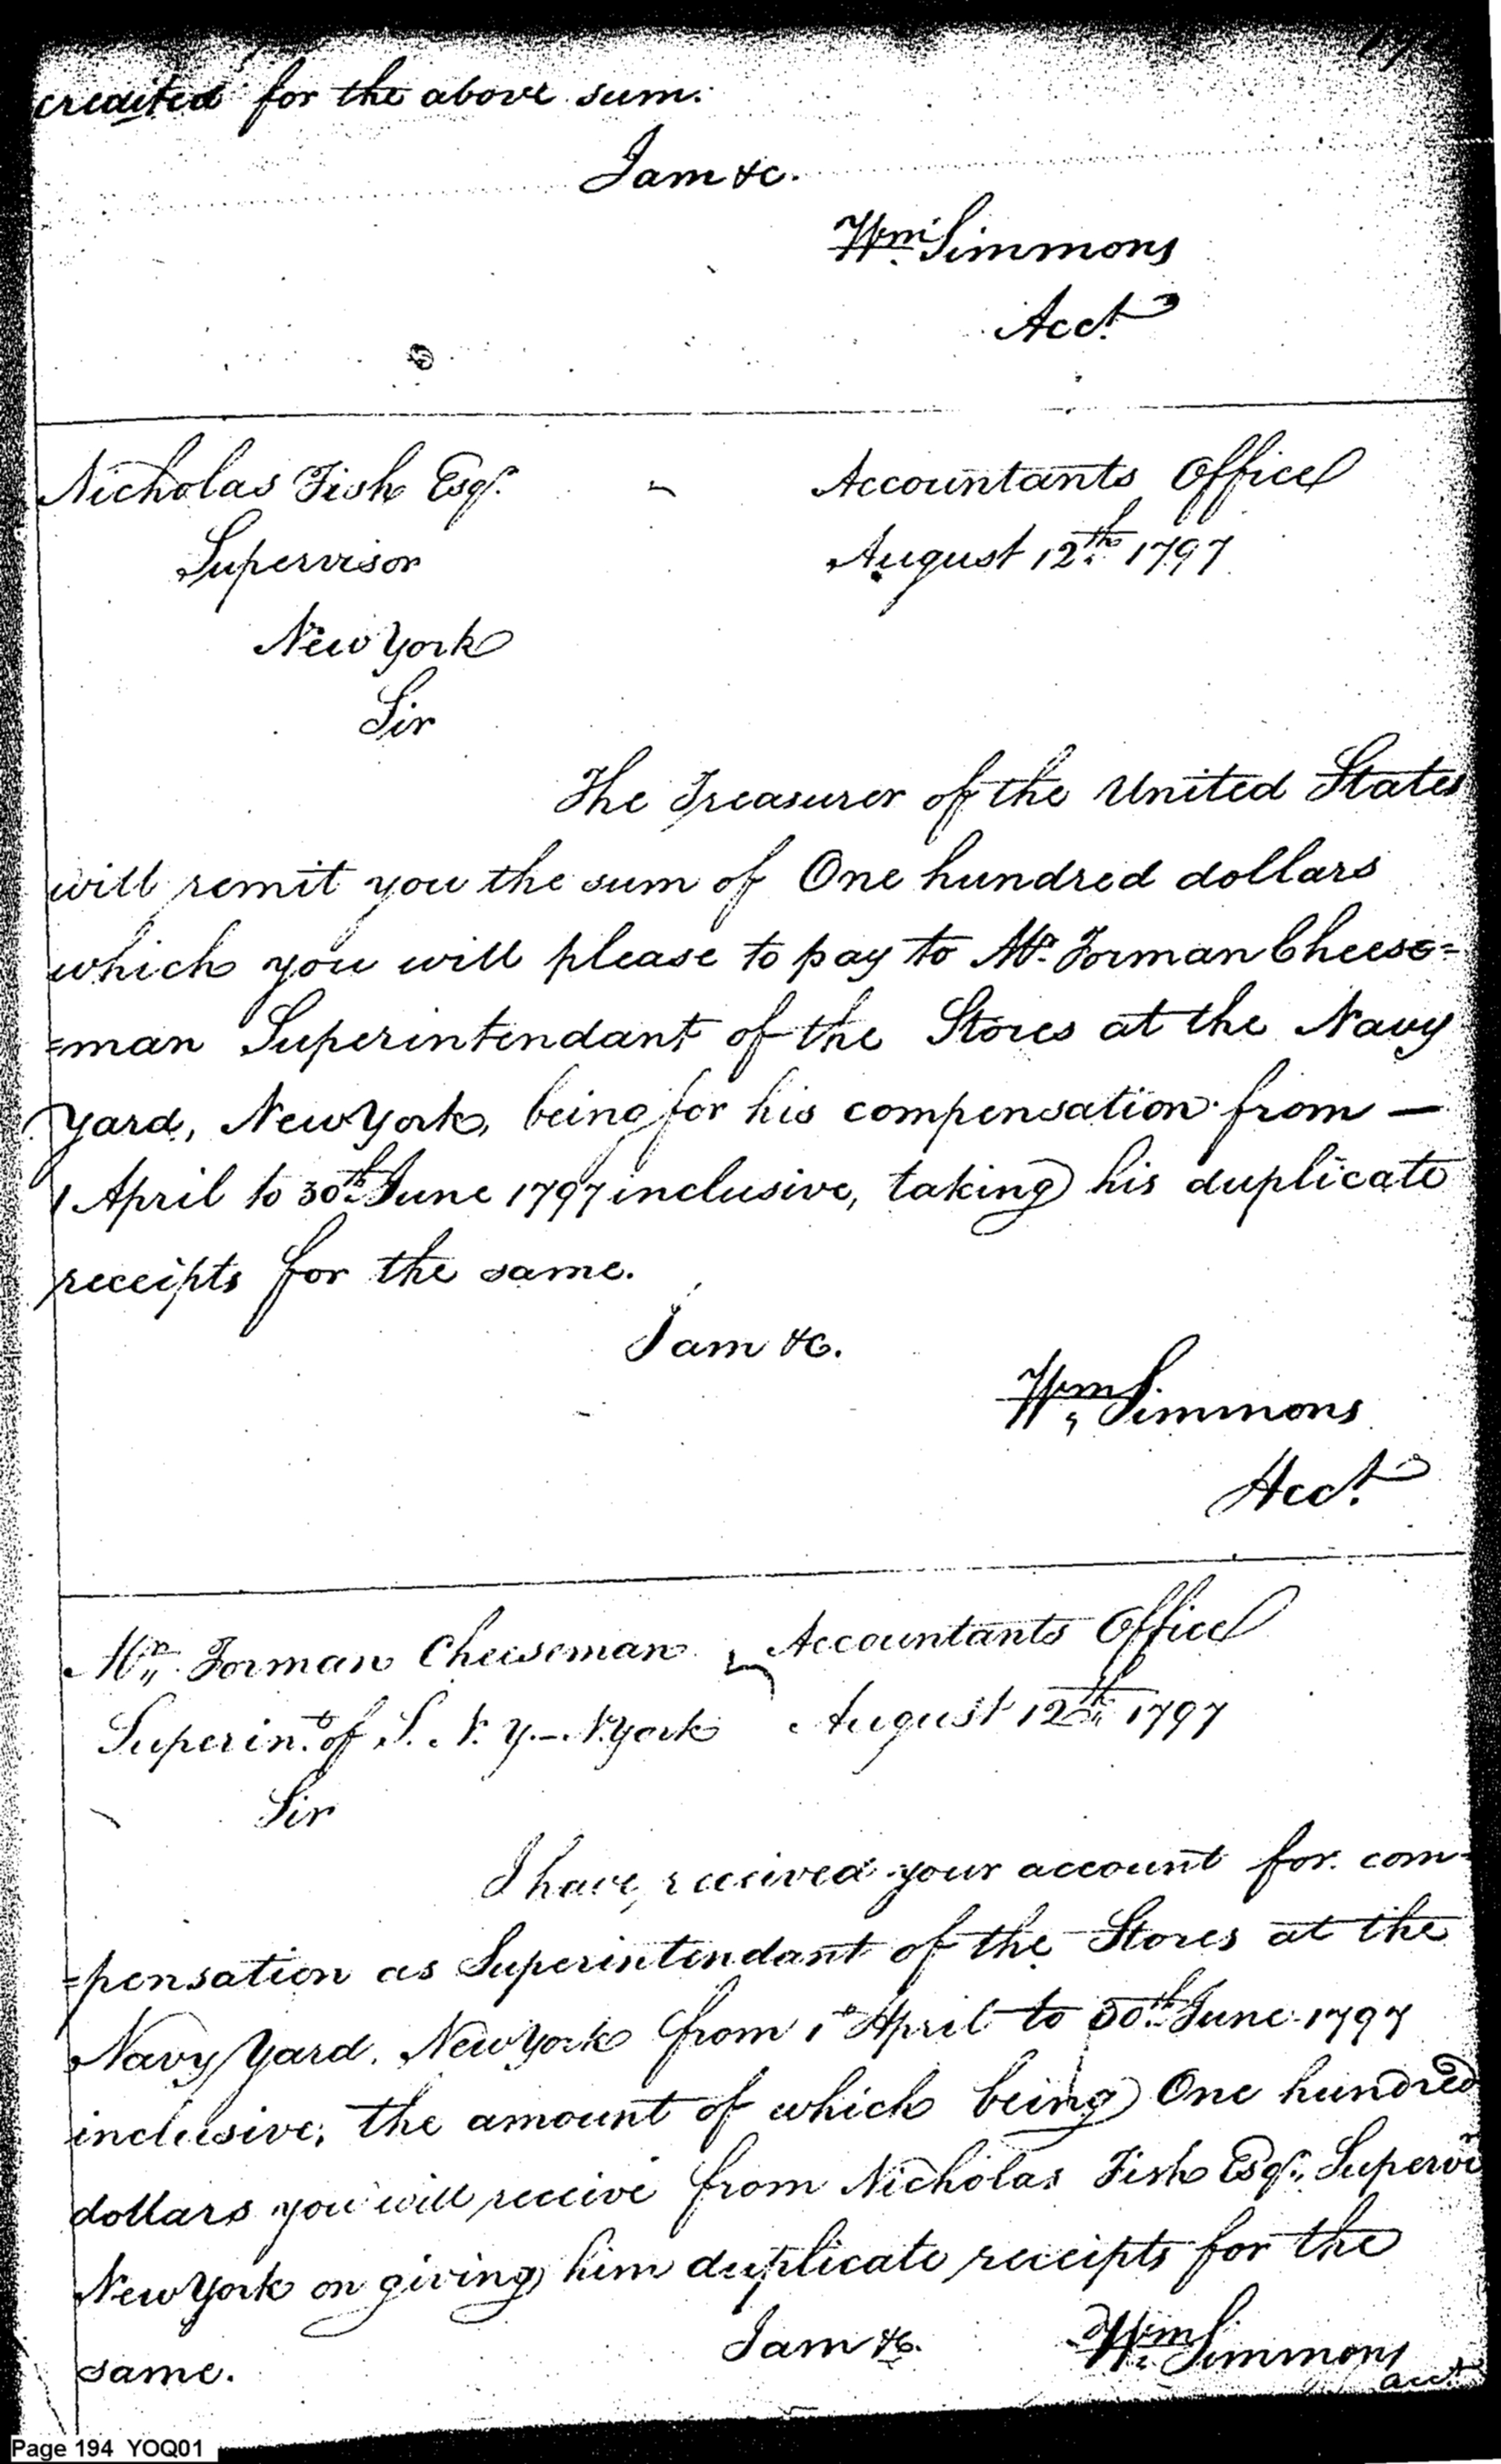 credited for the above sum.
I am &c.
Wm. Simmons
Acct.
Nicholas Fish Esqr.
Accountants Office
Supervisor
August 12th 1797
New York
Sir
The Treasurer of the United States
will remit you the sum of One hundred dollars
which you will please to pay to Mr. Forman Cheese=
=man Superintendant of the Stores at the Navy
Yard, New York, being for his compensation from —
1 April to 30th June 1797 inclusive, taking his duplicate
receipts for the same.
I am &c.
Wm. Simmons
Acct.
Mr. Forman Cheeseman
Accountants Office
Superint. of S. N. Y. - N. York
August 12th 1797
Sir
I have received your account for com=
=pensation as Superintendant of the Stores at the
Navy Yard. New York from 1st April to 30th June 1797
inclusive, the amount of which being One hundred
dollars you will receive from Nicholas Fish Esqr. Supervir
New York on giving him duplicate receipts for the
same.
I am &c.
Wm. Simmons
acct.
Page 194 YOQ01